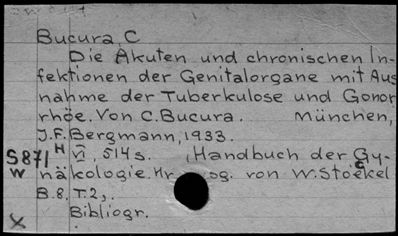 Bucura C
Die Akuten und chronischen In-
fektionen der Genitalorgane mit Aus
nahme der Tuberkulose und Gonor
rhöe. Von C. Bucura. München,
J.F. Bergmann, 1933.
S871 H VI, 514 s. (Handbuch der Gy-
W näkologie. Hr og. von W. Stoeckel
B.8, T.2,.
Bibliogr.
X